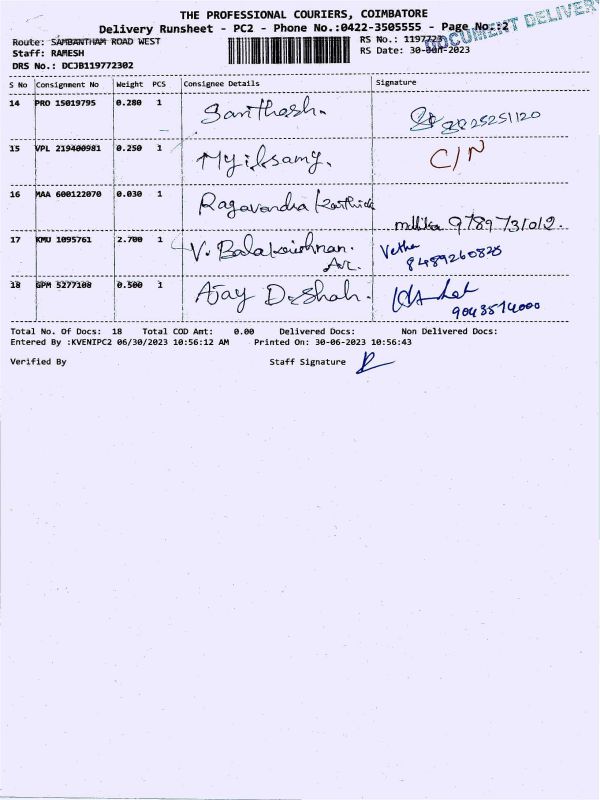 THE PROFESSIONAL COURIERS, COIMBATORE
Delivery Runsheet - PC2 - Phone No.:0422-3505555 - Page No.:2
DOCUMENT DELIVERY
Route: SAMBANTHAM ROAD WEST
RS No.: 1197723
Staff: RAMESH
RS Date: 30-Jun-2023
DRS No.: DCJB119772302
S No Consignment No Weight PCS Consignee Details Signature
14 PRO 15019795 0.280 1 Santhosh.
25251120
15 VPL 219400981 0.250 1 Myilsamy. C/N
16 MAA 600122070 0.030 1 Ragavendra Karthick
mallika 9789731012.
17 KMU 1095761 2.700 1 V. Balakrishnan. Vetha
Av. 8489260825
18 GPM 5277108 0.500 1 Ajay D. Shah.
9043514000
Total No. Of Docs: 18 Total COD Amt: 0.00 Delivered Docs: Non Delivered Docs:
Entered By :KVENIPC2 06/30/2023 10:56:12 AM Printed On: 30-06-2023 10:56:43
Verified By Staff Signature